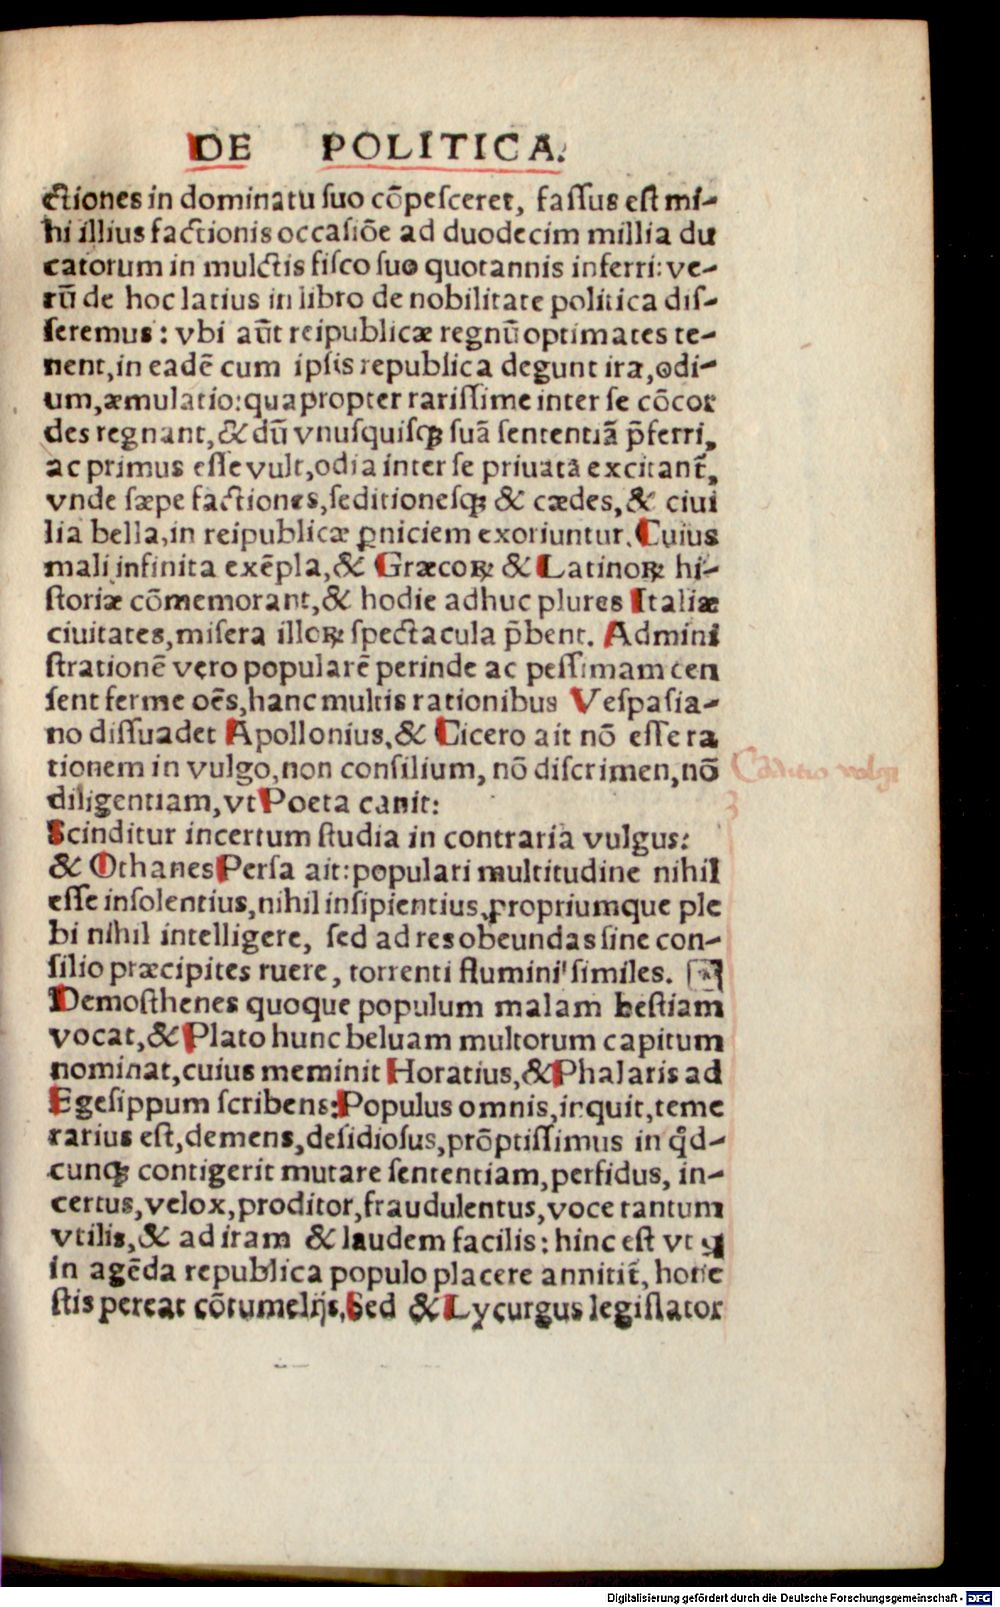 DE POLITICA.
ctiones in dominatu suo cōpesceret, fassus est mi-
hi illius factionis occasiōe ad duodecim millia du
catorum in mulctis fisco suo quotannis inferri: ve-
rū de hoc latius in libro de nobilitate politica dis-
seremus: vbi aūt reipublicæ regnū optimates te-
nent, in eadē cum ipsis republica degunt ira, odi-
um, æmulatio: quapropter rarissime inter se cōcor
des regnant, & dū vnusquisqꝫ suā sententiā p̄ferri,
ac primus esse vult, odia inter se priuata excitant̄,
vnde sæpe factiones, seditionesqꝫ & cædes, & ciui
lia bella, in reipublicæ ꝑniciem exoriuntur. Cuius
mali infinita exēpla, & Græcoꝝ & Latinoꝝ hi-
storiæ cōmemorant, & hodie adhuc plures Italiæ
ciuitates, misera illoꝝ spectacula p̄bent. Admini
strationē vero popularē perinde ac pessimam cen
sent ferme oēs, hanc multis rationibus Vespasia-
no dissuadet Apollonius, & Cicero ait nō esse ra
tionem in vulgo, non consilium, nō discrimen, nō
diligentiam, vt Poeta canit:
Scinditur incertum studia in contraria vulgus:
& Othanes Persa ait: populari multitudine nihil
esse insolentius, nihil insipientius, propriumque ple
bi nihil intelligere, sed ad res obeundas sine con-
silio præcipites ruere, torrenti flumini similes.
Demosthenes quoque populum malam bestiam
vocat, & Plato hunc beluam multorum capitum
nominat, cuius meminit Horatius, & Phalaris ad
Egesippum scribens: Populus omnis, inquit, teme
rarius est, demens, desidiosus, prōptissimus in qd-
cunqꝫ contigerit mutare sententiam, perfidus, in-
certus, velox, proditor, fraudulentus, voce tantum
vtilis, & ad iram & laudem facilis: hinc est vt q
in agēda republica populo placere annitit̄, hone
stis pereat cōtumelijs, Sed & Lycurgus legislator
Digitalisierung gefördert durch die Deutsche Forschungsgemeinschaft - DFG